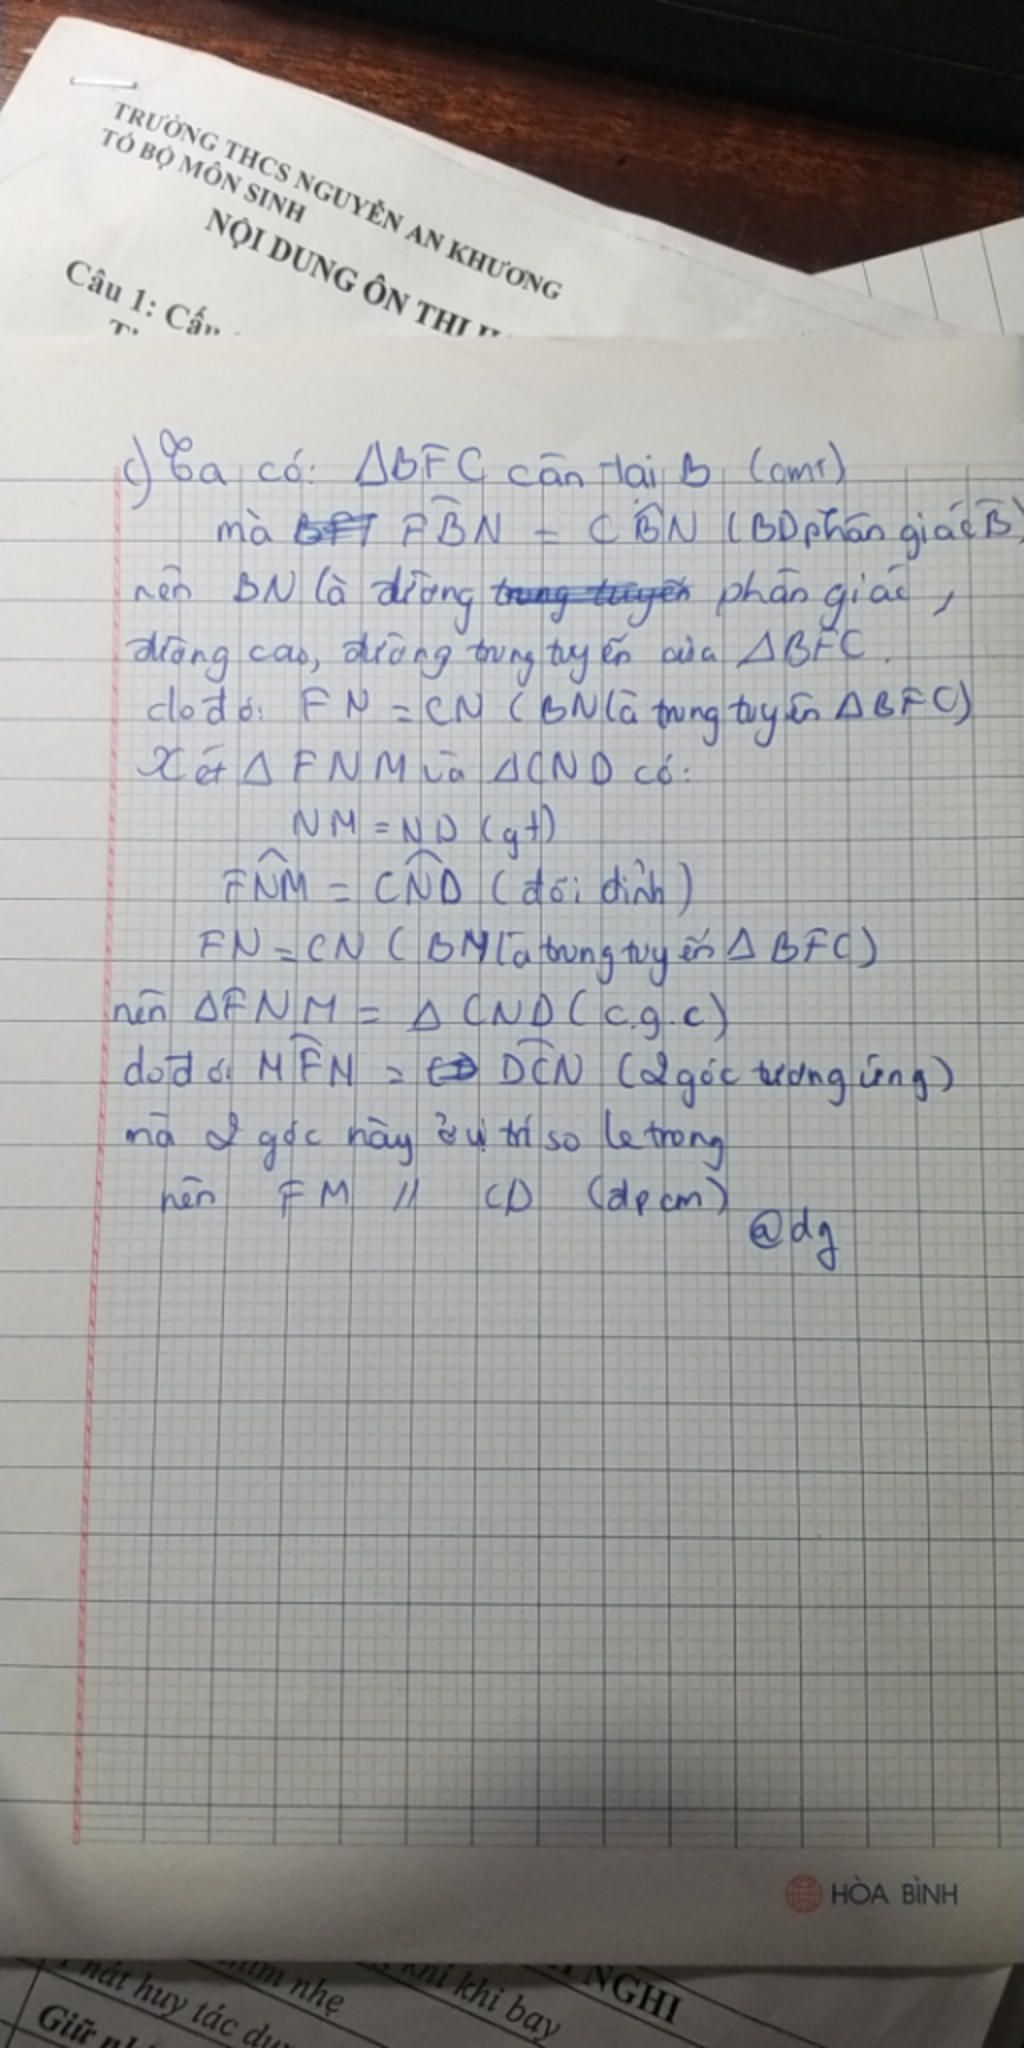 TRƯỜNG THCS NGUYỄN AN KHƯƠNG
TỔ BỘ MÔN SINH
NỘI DUNG ÔN THI
Câu 1: Cấu
c) Ta có: ΔBFC cân tại B (cmt)
mà FBN̂ = CBN̂ (BD phân giác B̂)
nên BN là đường phân giác,
đường cao, đường trung tuyến của ΔBFC.
do đó: FN = CN (BN là trung tuyến ΔBFC)
Xét ΔFNM và ΔCND có:
NM = ND (gt)
FNM̂ = CND̂ (đối đỉnh)
FN = CN (BN là trung tuyến ΔBFC)
nên ΔFNM = ΔCND (c.g.c)
do đó: MFN̂ = DCN̂ (2 góc tương ứng)
mà 2 góc này ở vị trí so le trong
nên FM // CD (đpcm)
@dg
HÒA BÌNH
NGHI
nhẹ
khi khi bay
huy tác
Giữ